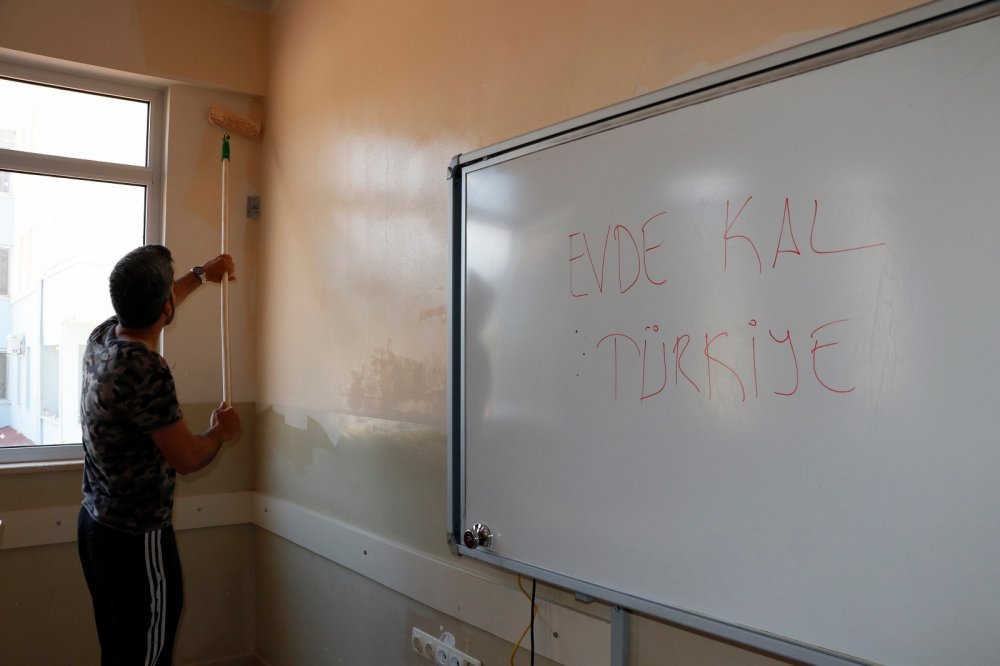 EVDE KAL
TÜRKİYE